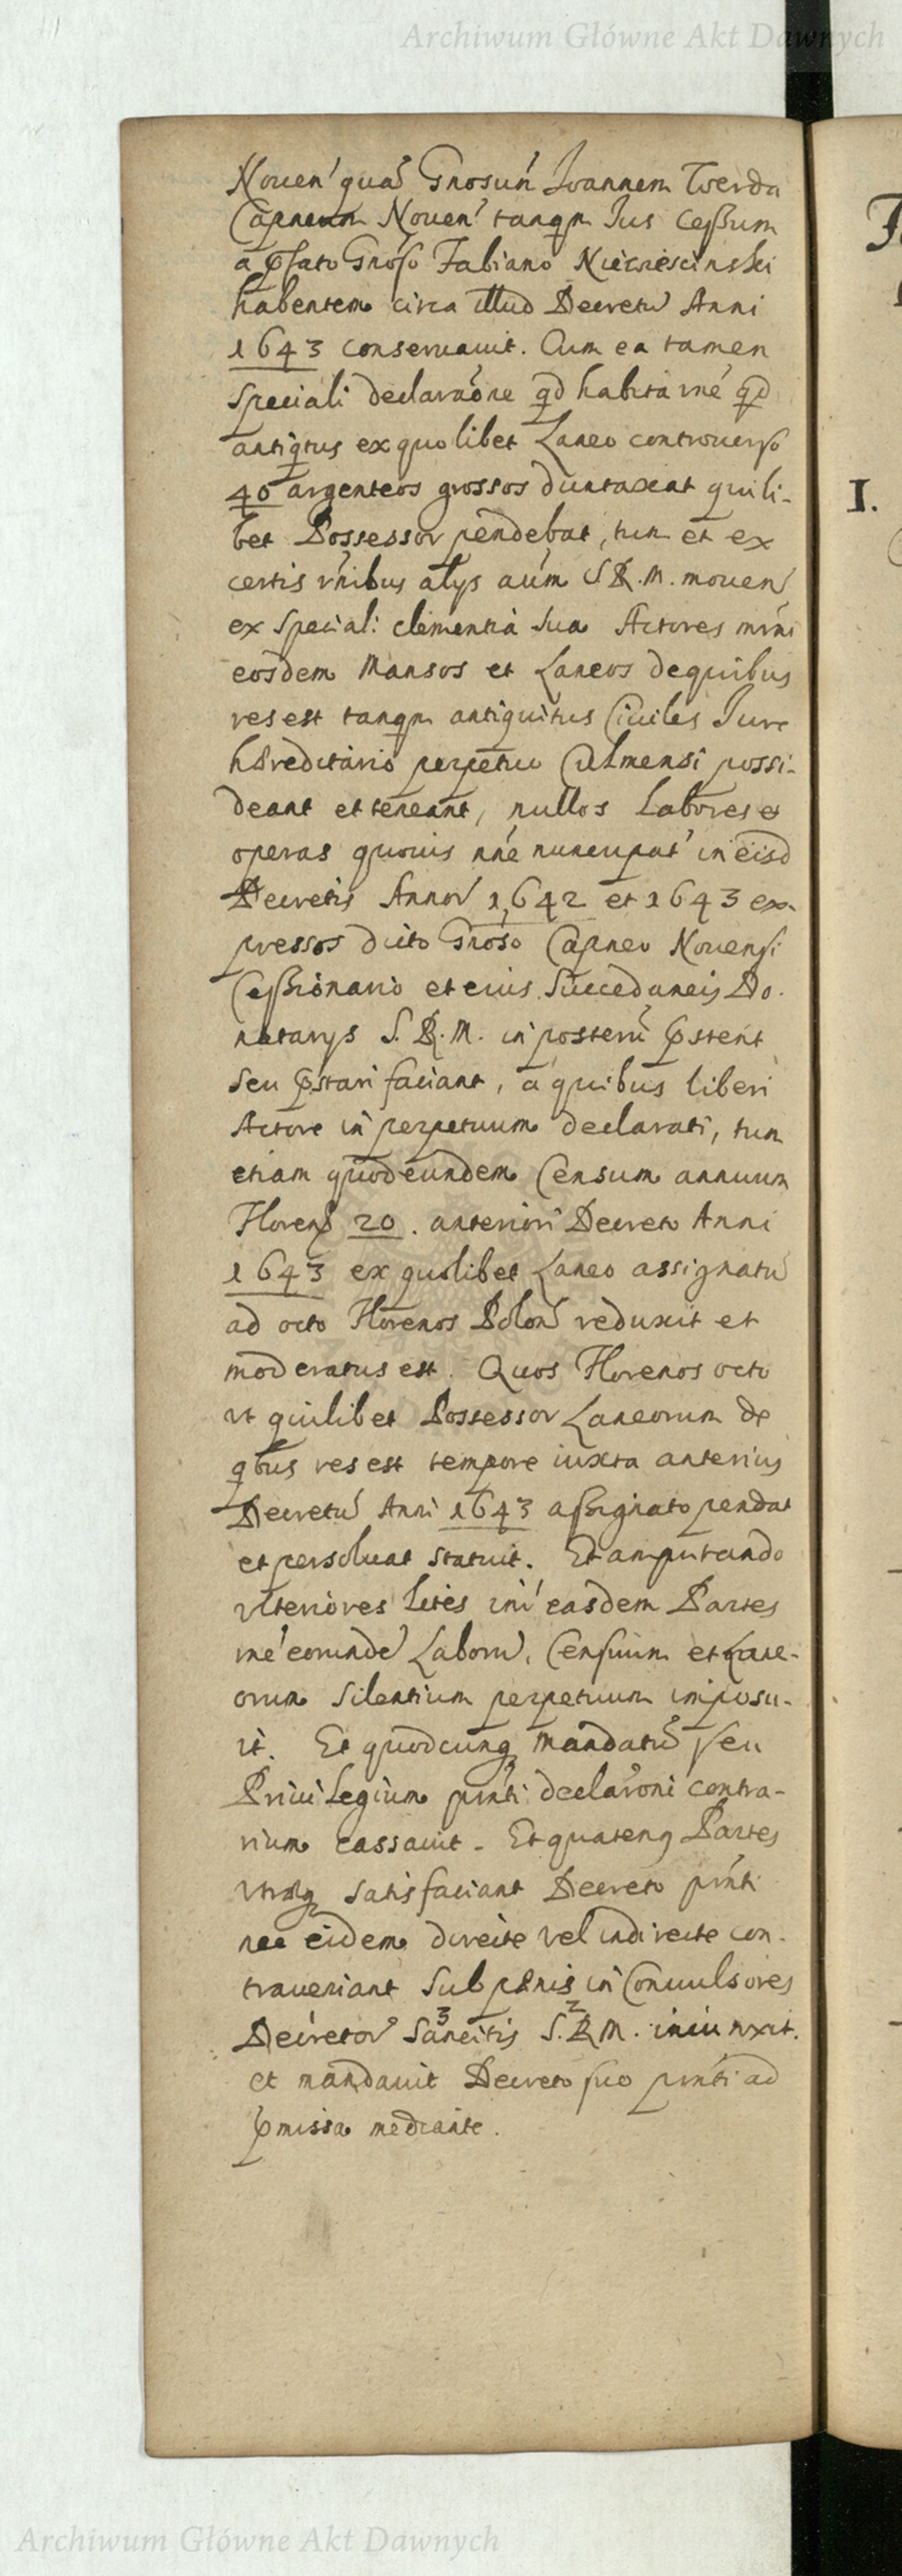 Archiwum Główne Akt Dawnych
Noven' quā Gnosūn' Joannem Tverda
Capneum Noven' tanqm Jus Cessum
a pfato Gnoso Fabiano Niewiescinski
habentem circa illud Decretū Anni
1643 conseruauit. Cum ea tamen
speciali declaraōne qd habita rnē qd
antiqtus ex quolibet Laneo controuerso
40 argenteos grossos duntaxat quili-
bet Possessor pendebat, tum et ex
certis rnibus alys aūm S.R.M. mouen'
ex speciali clementia sua Actores mrni
eosdem Mansos et Laneos de quibus
res est tanqm antiquitus Ciuiles Jure
hæreditario perpetuo Culmensi possi-
deant et teneant, nullos Labores et
operas quouis nne nuncupat' in eisd
Decretis Annor 1642 et 1643 ex-
pressos dicto Gnoso Capneo Nouensi
Cessionario et eius Succedaneis Do-
natarys S.R.M. in posterū pstent
seu pstari faciant, a quibus liberi
Actore in perpetuum declarati, tum
etiam quod eundem Censum annuum
Floren' 20. anteriori Decreto Anni
1643 ex quolibet Laneo assignatū
ad octo Florenos Polon' reduxit et
moderatus est. Quos Florenos octo
vt quilibet Possessor Laneorum de
qbus res est tempore iuxta anterius
Decretū Anni 1643 assignato pendat
et persoluat statuit. Et amputando
vlteriores lites inī easdem Partes
rnē eorundē Laborū, Censuum et Lane-
orum silentium perpetuum imposu-
it. Et quodcunq mandatū seu
Priuilegium pnti declarōni contra-
rium cassauit. Et quatenq Partes
vtraq satisfaciant Decreto pnti
nec eidem directe vel indirecte con-
traueniant sub pænis in Conuulsores
Decretor 3 sancitis 2 S.R.M. iniunxit.
et mandauit Decreto suo pnti ad
pmissa mediante.
I.
Archiwum Główne Akt Dawnych